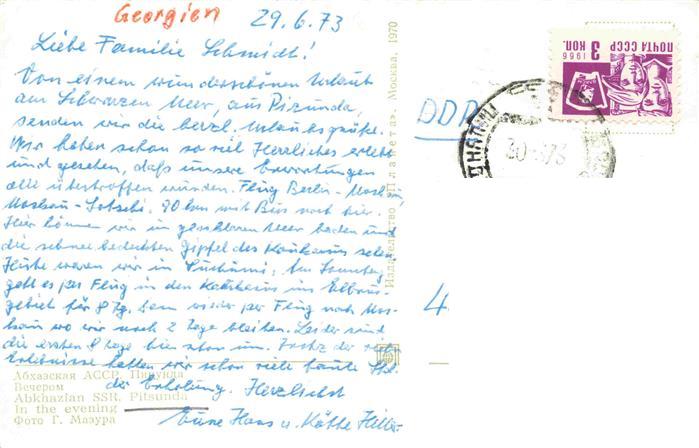 Georgien 29.6.73
Liebe Familie Schmidt!
Von einem wunderschönen Urlaub
am Schwarzen Meer, aus Pizunda,
senden wir die herzl. Urlaubsgrüße.
Wir haben schon so viel Herrliches erlebt
und gesehen, daß unsere Erwartungen
alle übertroffen wurden. Flug Berlin - Moskau,
Moskau - Sotschi. 90 km mit Bus nach hier.
Hier können wir im Meer baden und
die schneebedeckten Gipfel des Kaukasus sehen.
Heute waren wir in Suchumi. Am Sonntag
geht es per Flug in den Kaukasus ins Elbrus-
gebiet für 8 Tg. dann wieder per Flug nach Mos-
kau wo wir noch 2 Tage bleiben. Leider sind
die ersten 8 Tage hier schon um. Trotz der
Erlebnisse hatten wir schon viele
der Erholung. Herzlichst
Eure Hans u. Käthe Hiller
Абхазская АССР. Пицунда
Вечером
Abkhazian SSR. Pitsunda
In the evening
Фото Г. Мазура
Издательство «Планета». Москва. 1970
DDR
4
ПОЧТА СССР
3 КОП.
1966
30 73